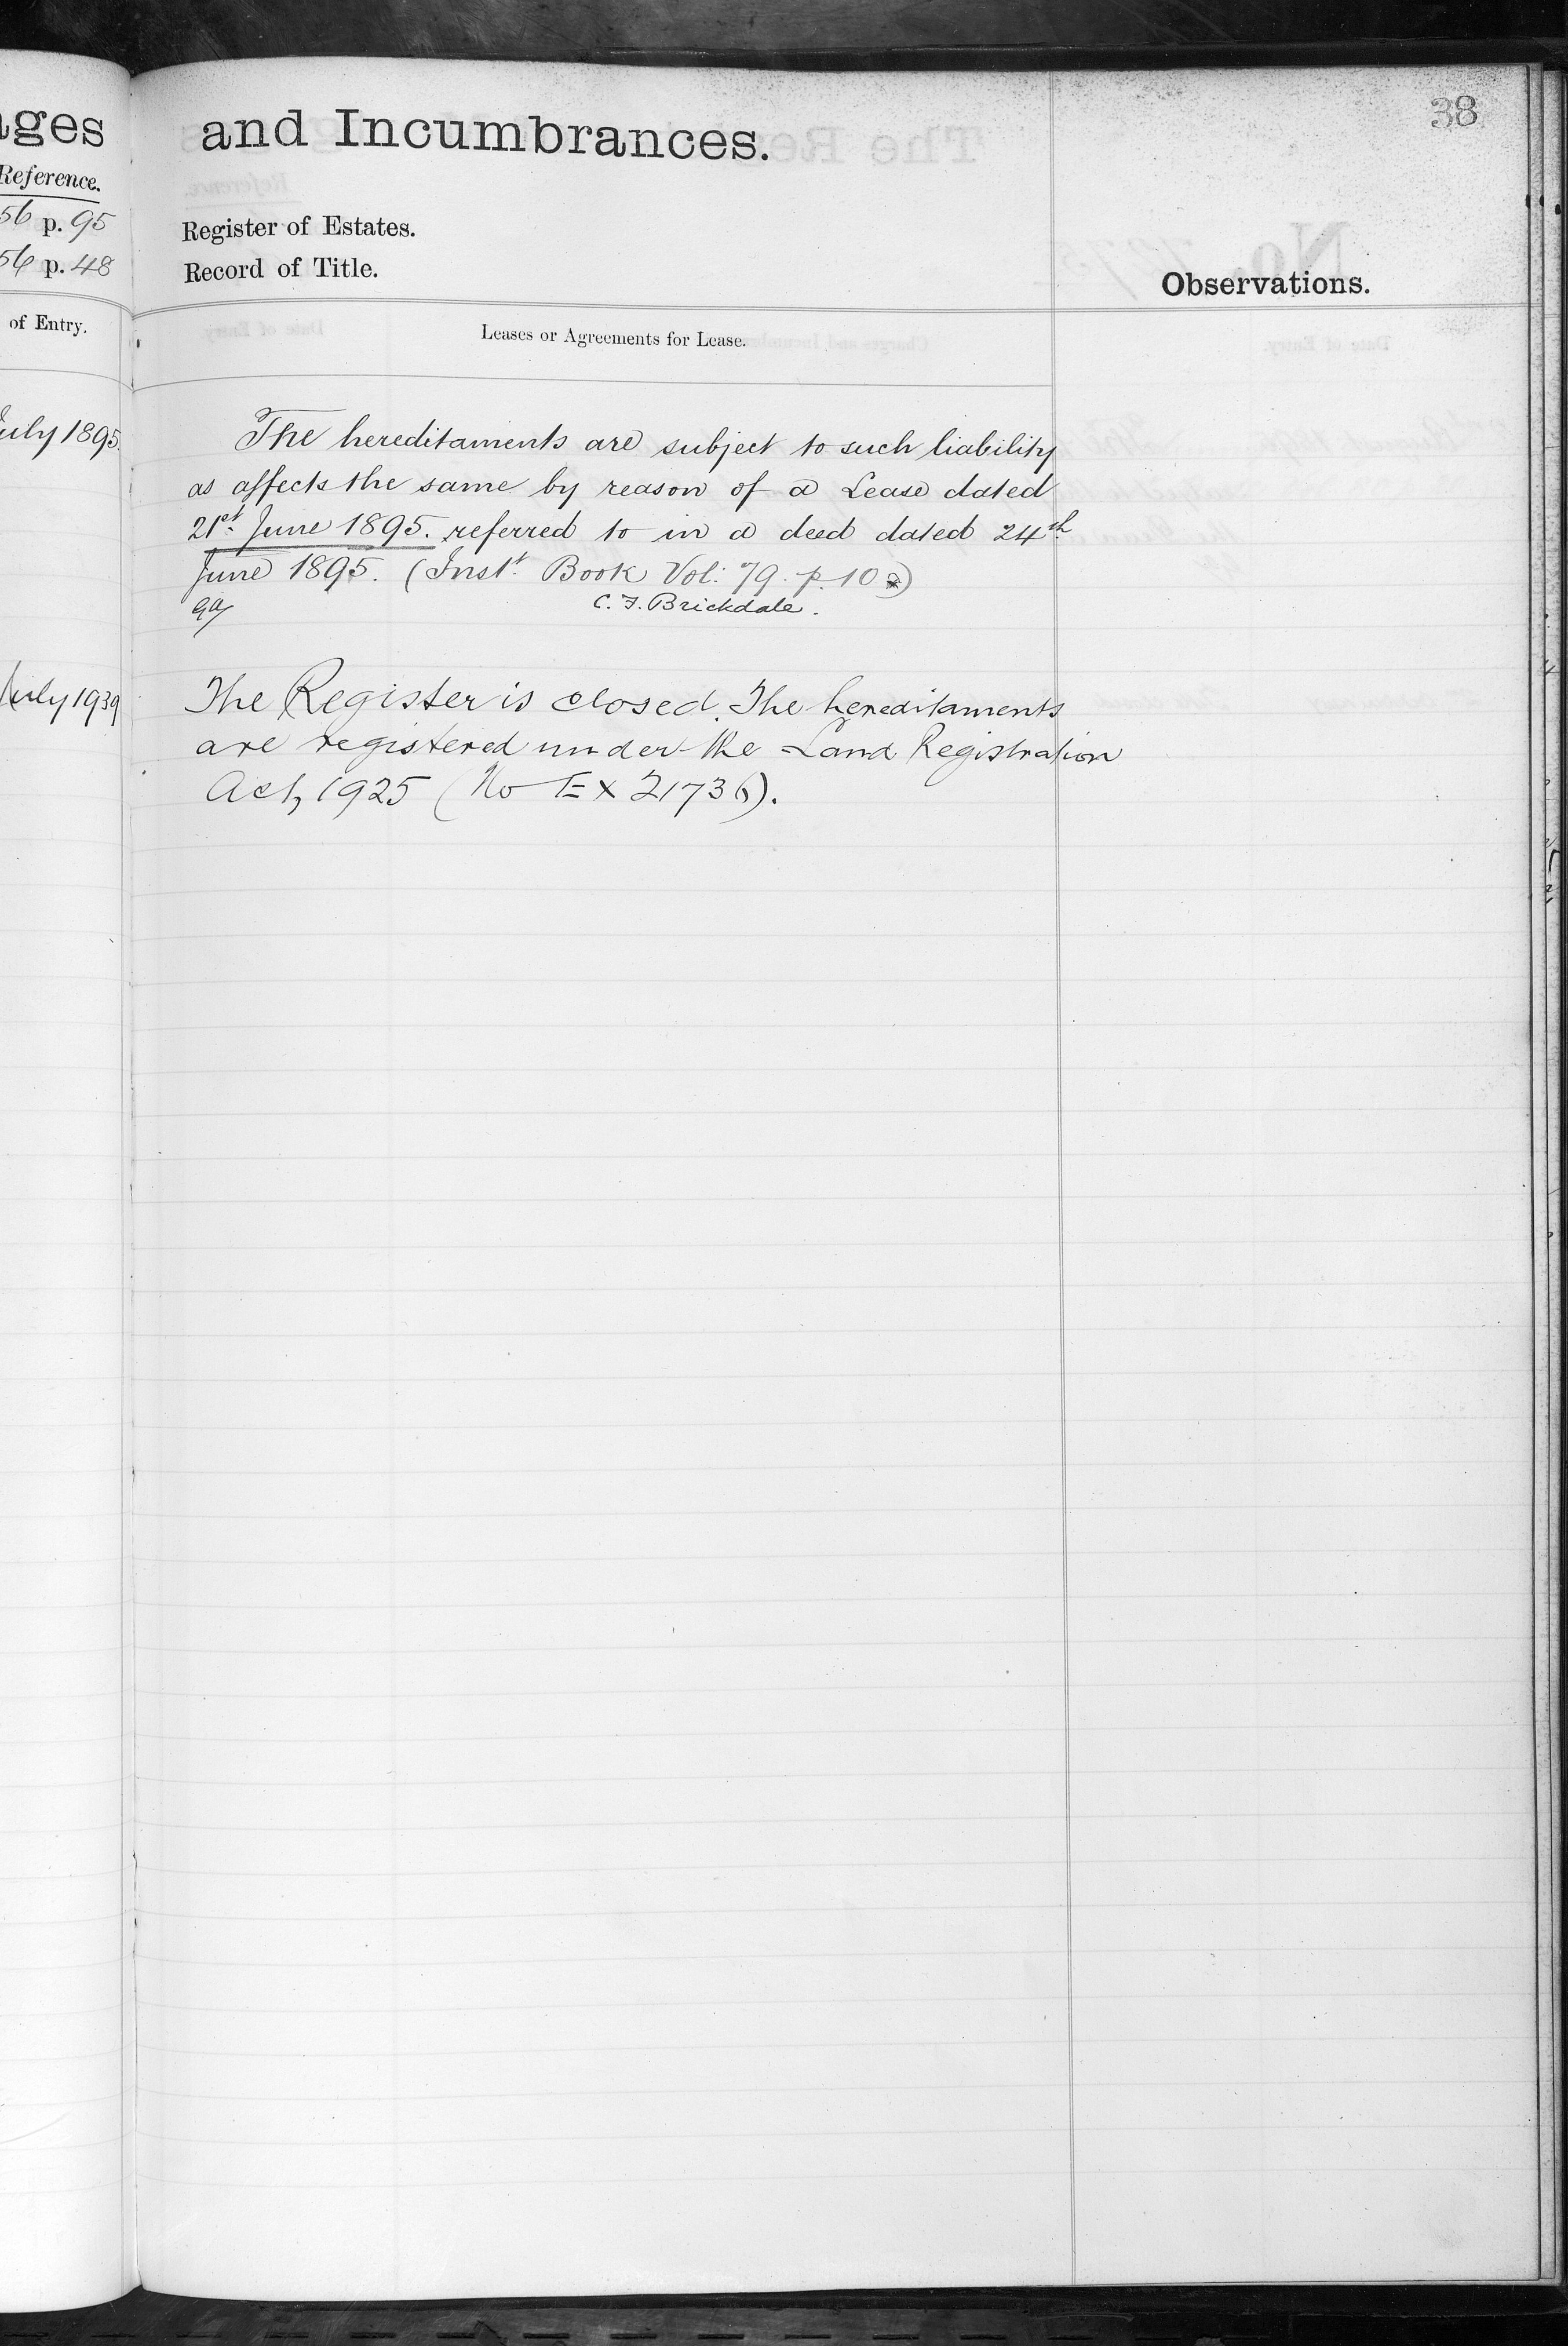 38
ages
Reference.
56 p. 95
56 p. 48
of Entry.
July 1895.
July 1939
and Incumbrances.
Register of Estates.
Record of Title.
Observations.
Leases or Agreements for Lease.
The hereditaments are subject to such liability
as affects the same by reason of a Lease dated
21st June 1895. referred to in a deed dated 24th
June 1895. (Inst. Book Vol: 79. p. 10
C. F. Brickdale.
The Register is closed. The hereditaments
are registered under the Land Registration
Act, 1925 (No EX 21736).